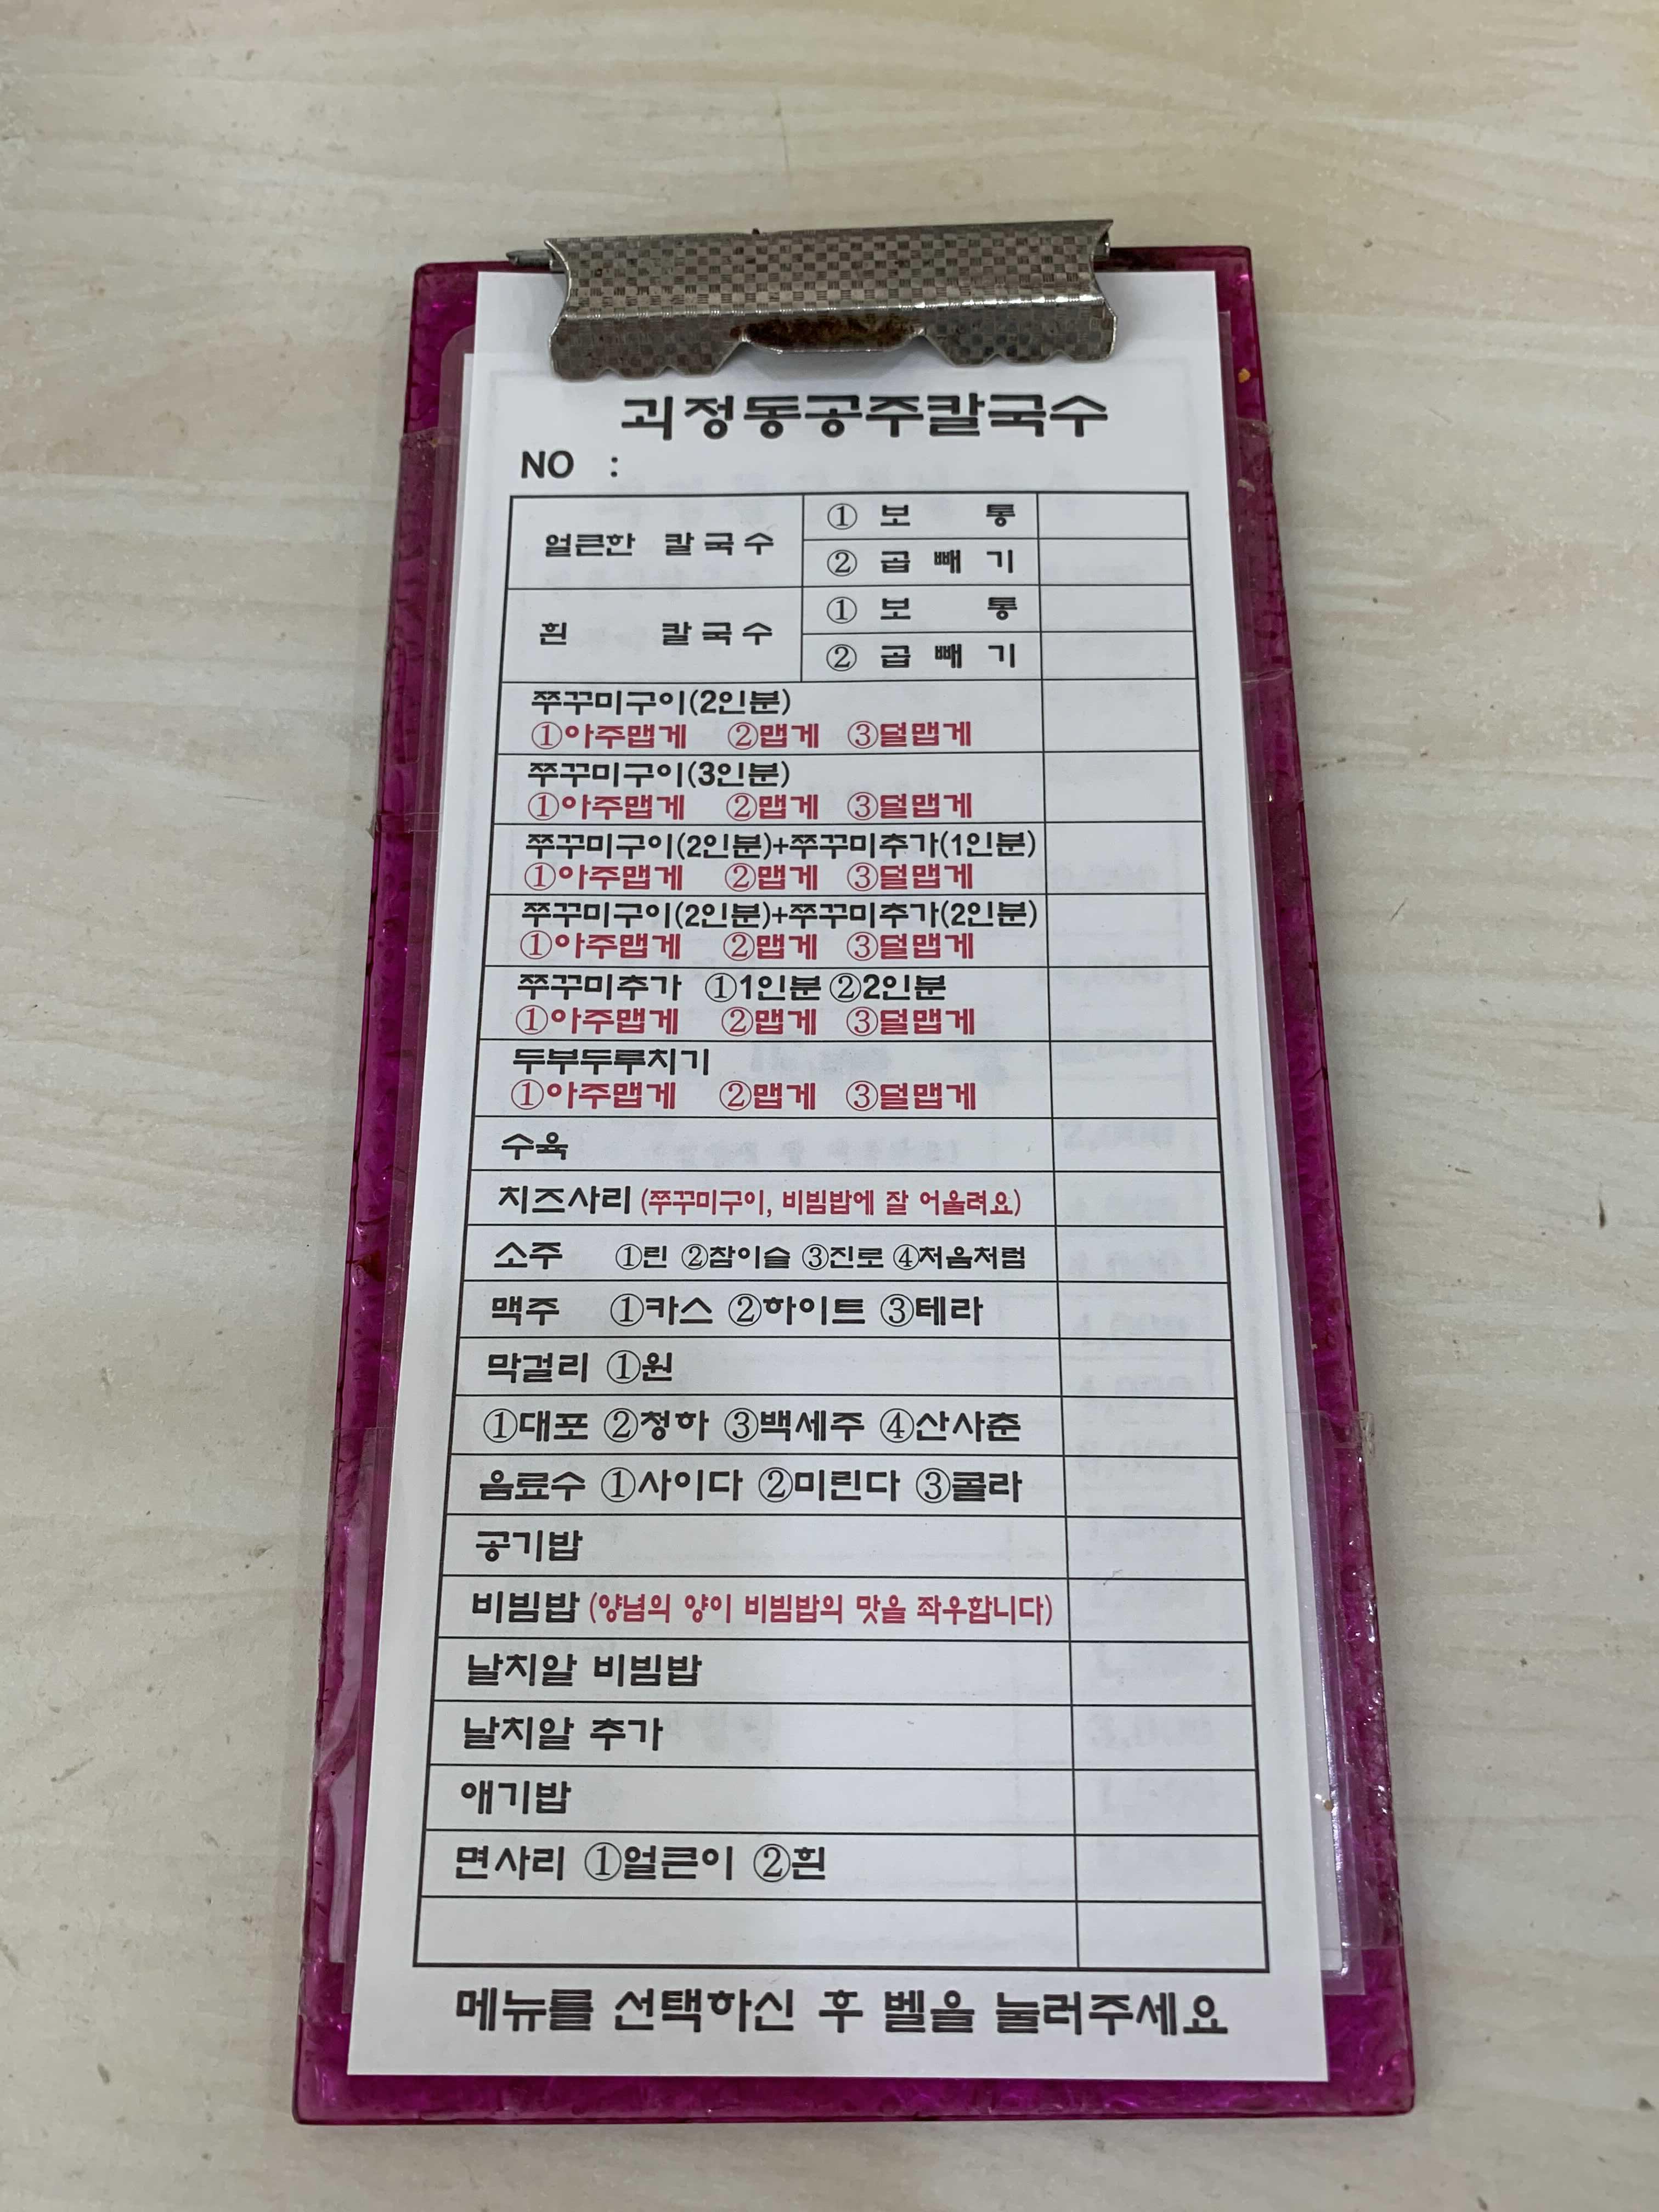 괴정동공주칼국수
NO :
얼큰한 칼국수
① 보 통
② 곱 빼 기
흰 칼국수
① 보 통
② 곱 빼 기
쭈꾸미구이(2인분)
①아주맵게 ②맵게 ③덜맵게
쭈꾸미구이(3인분)
①아주맵게 ②맵게 ③덜맵게
쭈꾸미구이(2인분)+쭈꾸미추가(1인분)
①아주맵게 ②맵게 ③덜맵게
쭈꾸미구이(2인분)+쭈꾸미추가(2인분)
①아주맵게 ②맵게 ③덜맵게
쭈꾸미추가 ①1인분 ②2인분
①아주맵게 ②맵게 ③덜맵게
두부두루치기
①아주맵게 ②맵게 ③덜맵게
수육
치즈사리 (쭈꾸미구이, 비빔밥에 잘 어울려요)
소주 ①린 ②참이슬 ③진로 ④처음처럼
맥주 ①카스 ②하이트 ③테라
막걸리 ①원
①대포 ②청하 ③백세주 ④산사춘
음료수 ①사이다 ②미린다 ③콜라
공기밥
비빔밥 (양념의 양이 비빔밥의 맛을 좌우합니다)
날치알 비빔밥
날치알 추가
애기밥
면사리 ①얼큰이 ②흰
메뉴를 선택하신 후 벨을 눌러주세요